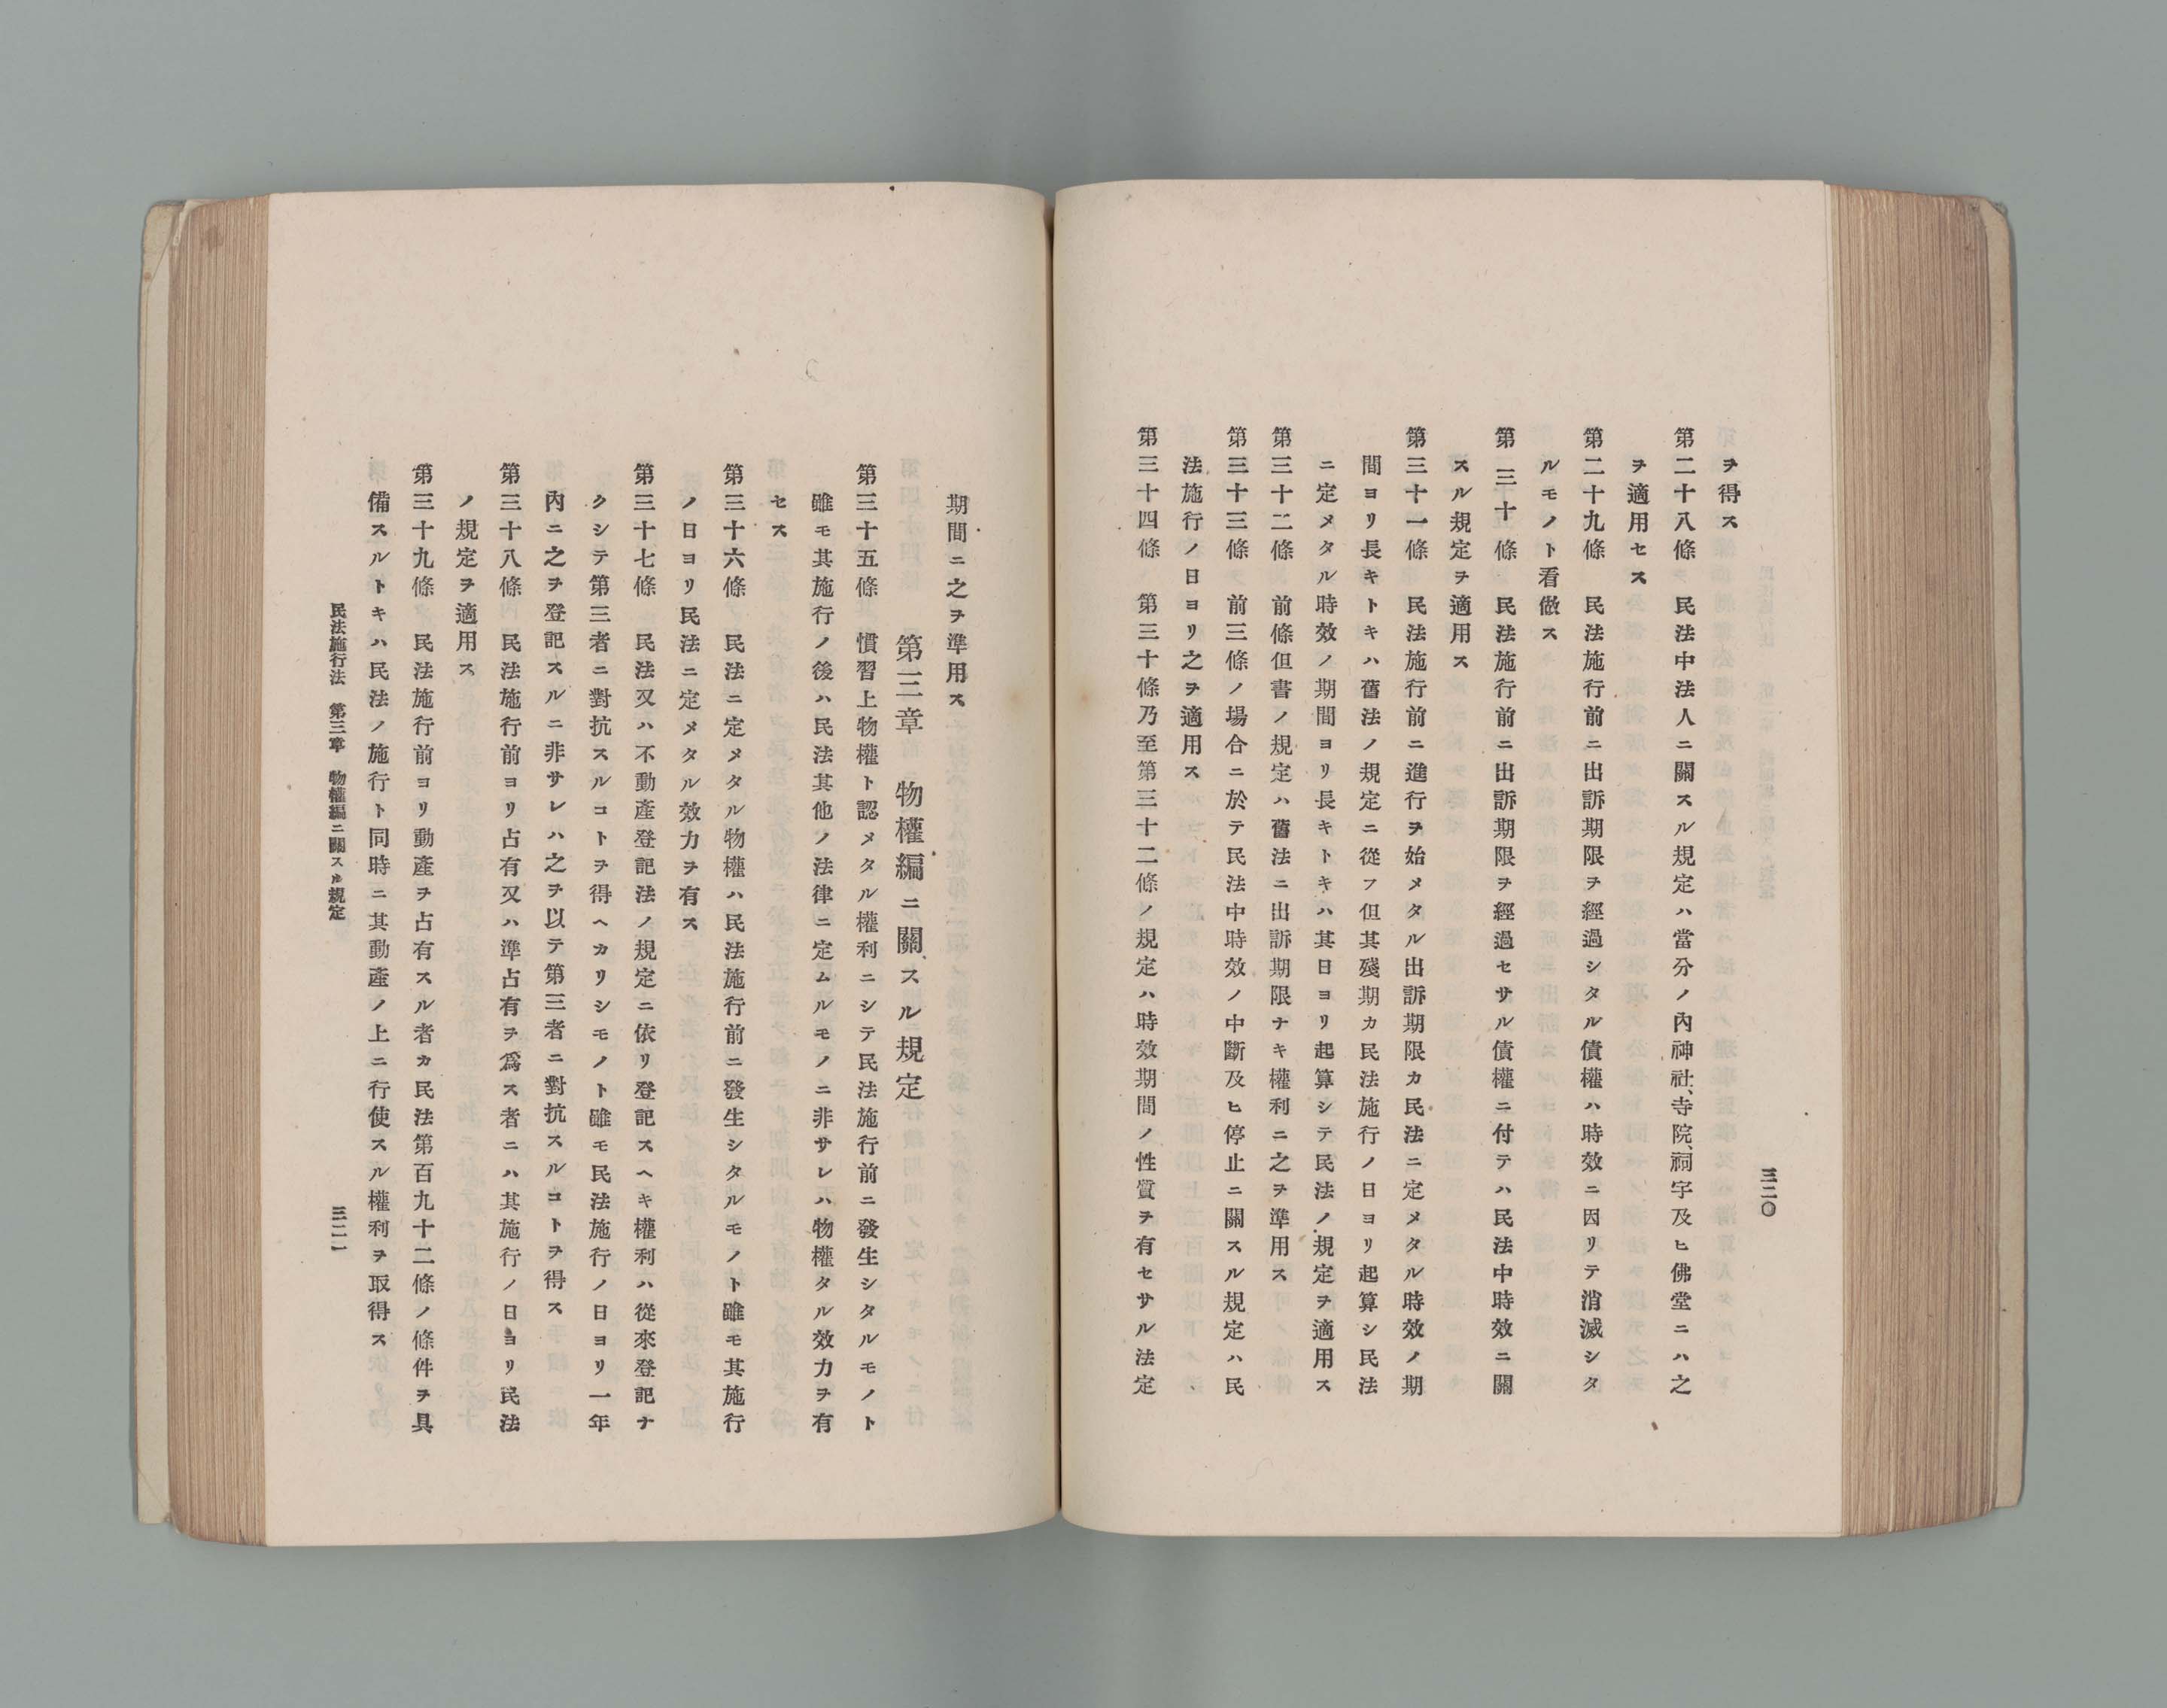 三二〇
ヲ得ス
第二十八條　民法中法人ニ關スル規定ハ當分ノ內神社、寺院、祠宇及ヒ佛堂ニハ之
ヲ適用セス
第二十九條　民法施行前ニ出訴期限ヲ經過シタル債權ハ時效ニ因リテ消滅シタ
ルモノト看做ス
第三十條　民法施行前ニ出訴期限ヲ經過セサル債權ニ付テハ民法中時效ニ關
スル規定ヲ適用ス
第三十一條　民法施行前ニ進行ヲ始メタル出訴期限カ民法ニ定メタル時效ノ期
間ヨリ長キトキハ舊法ノ規定ニ從フ但其殘期カ民法施行ノ日ヨリ起算シ民法
ニ定メタル時效ノ期間ヨリ長キトキハ其日ヨリ起算シテ民法ノ規定ヲ適用ス
第三十二條　前條但書ノ規定ハ舊法ニ出訴期限ナキ權利ニ之ヲ準用ス
第三十三條　前三條ノ場合ニ於テ民法中時效ノ中斷及ヒ停止ニ關スル規定ハ民
法施行ノ日ヨリ之ヲ適用ス
第三十四條　第三十條乃至第三十二條ノ規定ハ時效期間ノ性質ヲ有セサル法定
期間ニ之ヲ準用ス
第三章　物權編ニ關スル規定
第三十五條　慣習上物權ト認メタル權利ニシテ民法施行前ニ發生シタルモノト
雖モ其施行ノ後ハ民法其他ノ法律ニ定ムルモノニ非サレハ物權タル效力ヲ有
セス
第三十六條　民法ニ定メタル物權ハ民法施行前ニ發生シタルモノト雖モ其施行
ノ日ヨリ民法ニ定メタル效力ヲ有ス
第三十七條　民法又ハ不動產登記法ノ規定ニ依リ登記スヘキ權利ハ從來登記ナ
クシテ第三者ニ對抗スルコトヲ得ヘカリシモノト雖モ民法施行ノ日ヨリ一年
內ニ之ヲ登記スルニ非サレハ之ヲ以テ第三者ニ對抗スルコトヲ得ス
第三十八條　民法施行前ヨリ占有又ハ準占有ヲ爲ス者ニハ其施行ノ日ヨリ民法
ノ規定ヲ適用ス
第三十九條　民法施行前ヨリ動產ヲ占有スル者カ民法第百九十二條ノ條件ヲ具
備スルトキハ民法ノ施行ト同時ニ其動產ノ上ニ行使スル權利ヲ取得ス
民法施行法　第三章　物權編ニ關スル規定
三二一